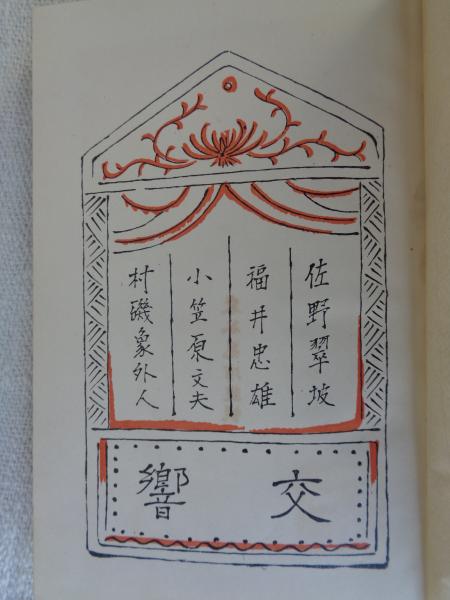 佐野翠坡
福井忠雄
小笠原文夫
村磯象外人
交響